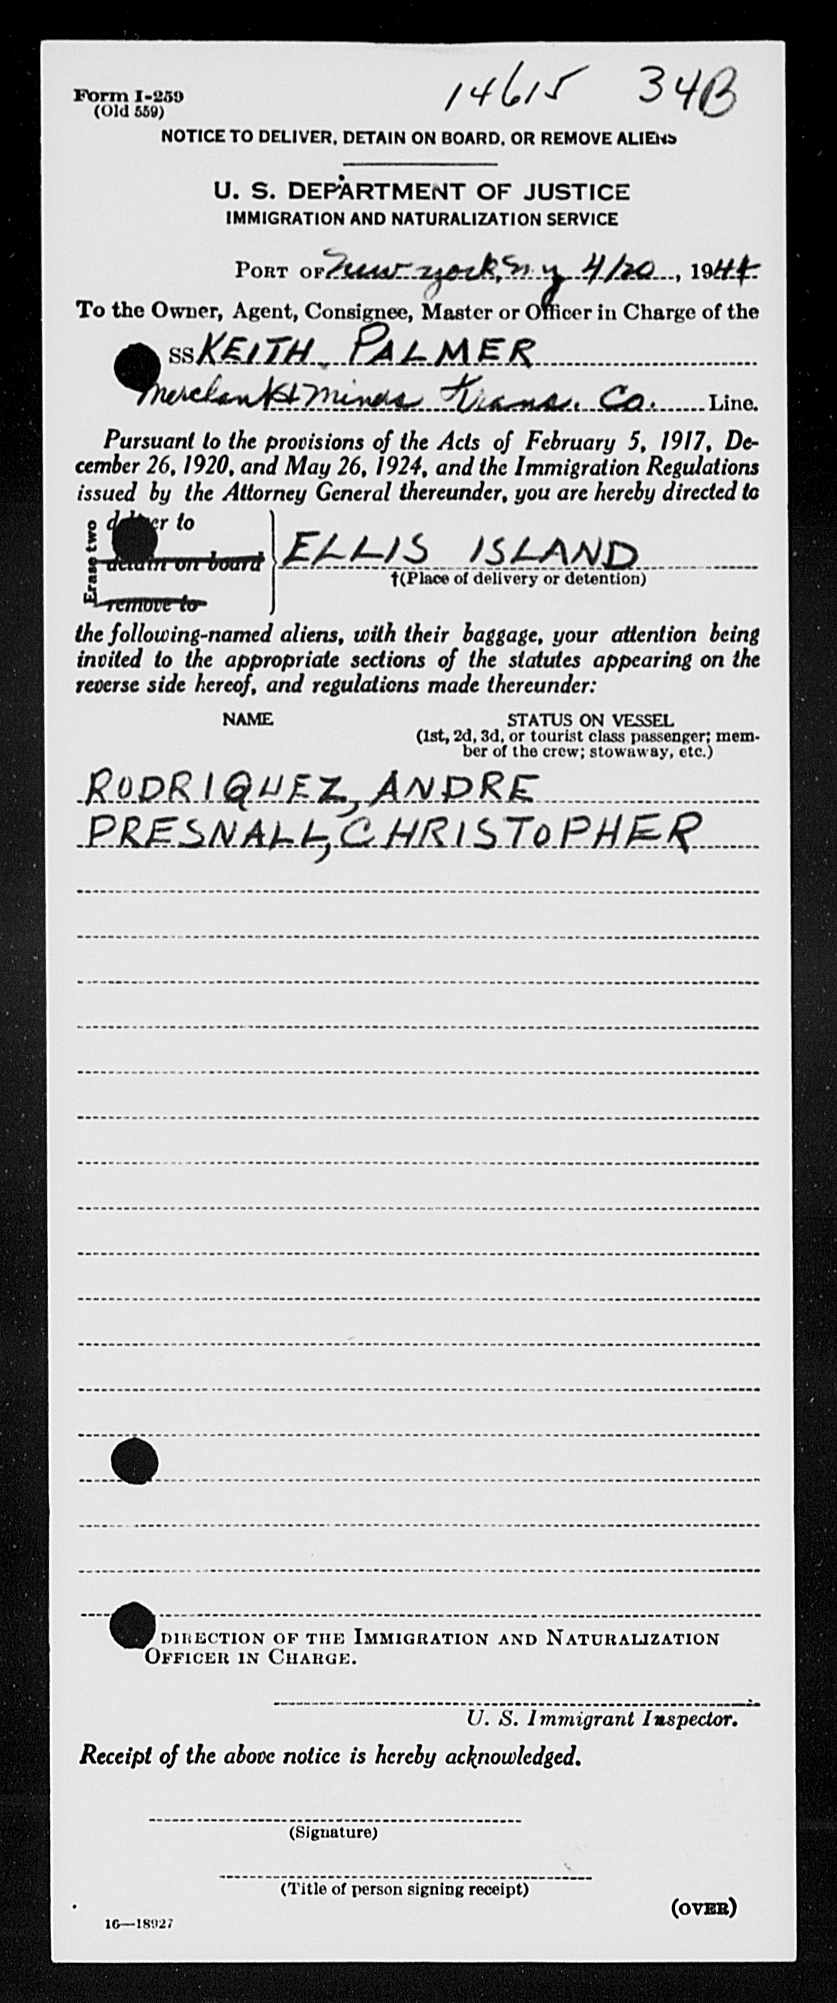 14615 34B
Form I-259
(Old 559)
NOTICE TO DELIVER, DETAIN ON BOARD, OR REMOVE ALIENS
U. S. DEPARTMENT OF JUSTICE
IMMIGRATION AND NATURALIZATION SERVICE
PORT OF New York, N.Y. 4/20, 1944
To the Owner, Agent, Consignee, Master or Officer in Charge of the
SS KEITH PALMER
Merchants & Miners Trans. Co. Line.
Pursuant to the provisions of the Acts of February 5, 1917, De-
cember 26, 1920, and May 26, 1924, and the Immigration Regulations
issued by the Attorney General thereunder, you are hereby directed to
Erase two
deliver to
detain on board
remove to
ELLIS ISLAND
†(Place of delivery or detention)
the following-named aliens, with their baggage, your attention being
invited to the appropriate sections of the statutes appearing on the
reverse side hereof, and regulations made thereunder:
NAME STATUS ON VESSEL
(1st, 2d, 3d, or tourist class passenger; mem-
ber of the crew; stowaway, etc.)
RODRIQUEZ, ANDRE
PRESNALL, CHRISTOPHER
DIRECTION OF THE IMMIGRATION AND NATURALIZATION
OFFICER IN CHARGE.
U. S. Immigrant Inspector.
Receipt of the above notice is hereby acknowledged.
(Signature)
(Title of person signing receipt)
(OVER)
16—18927